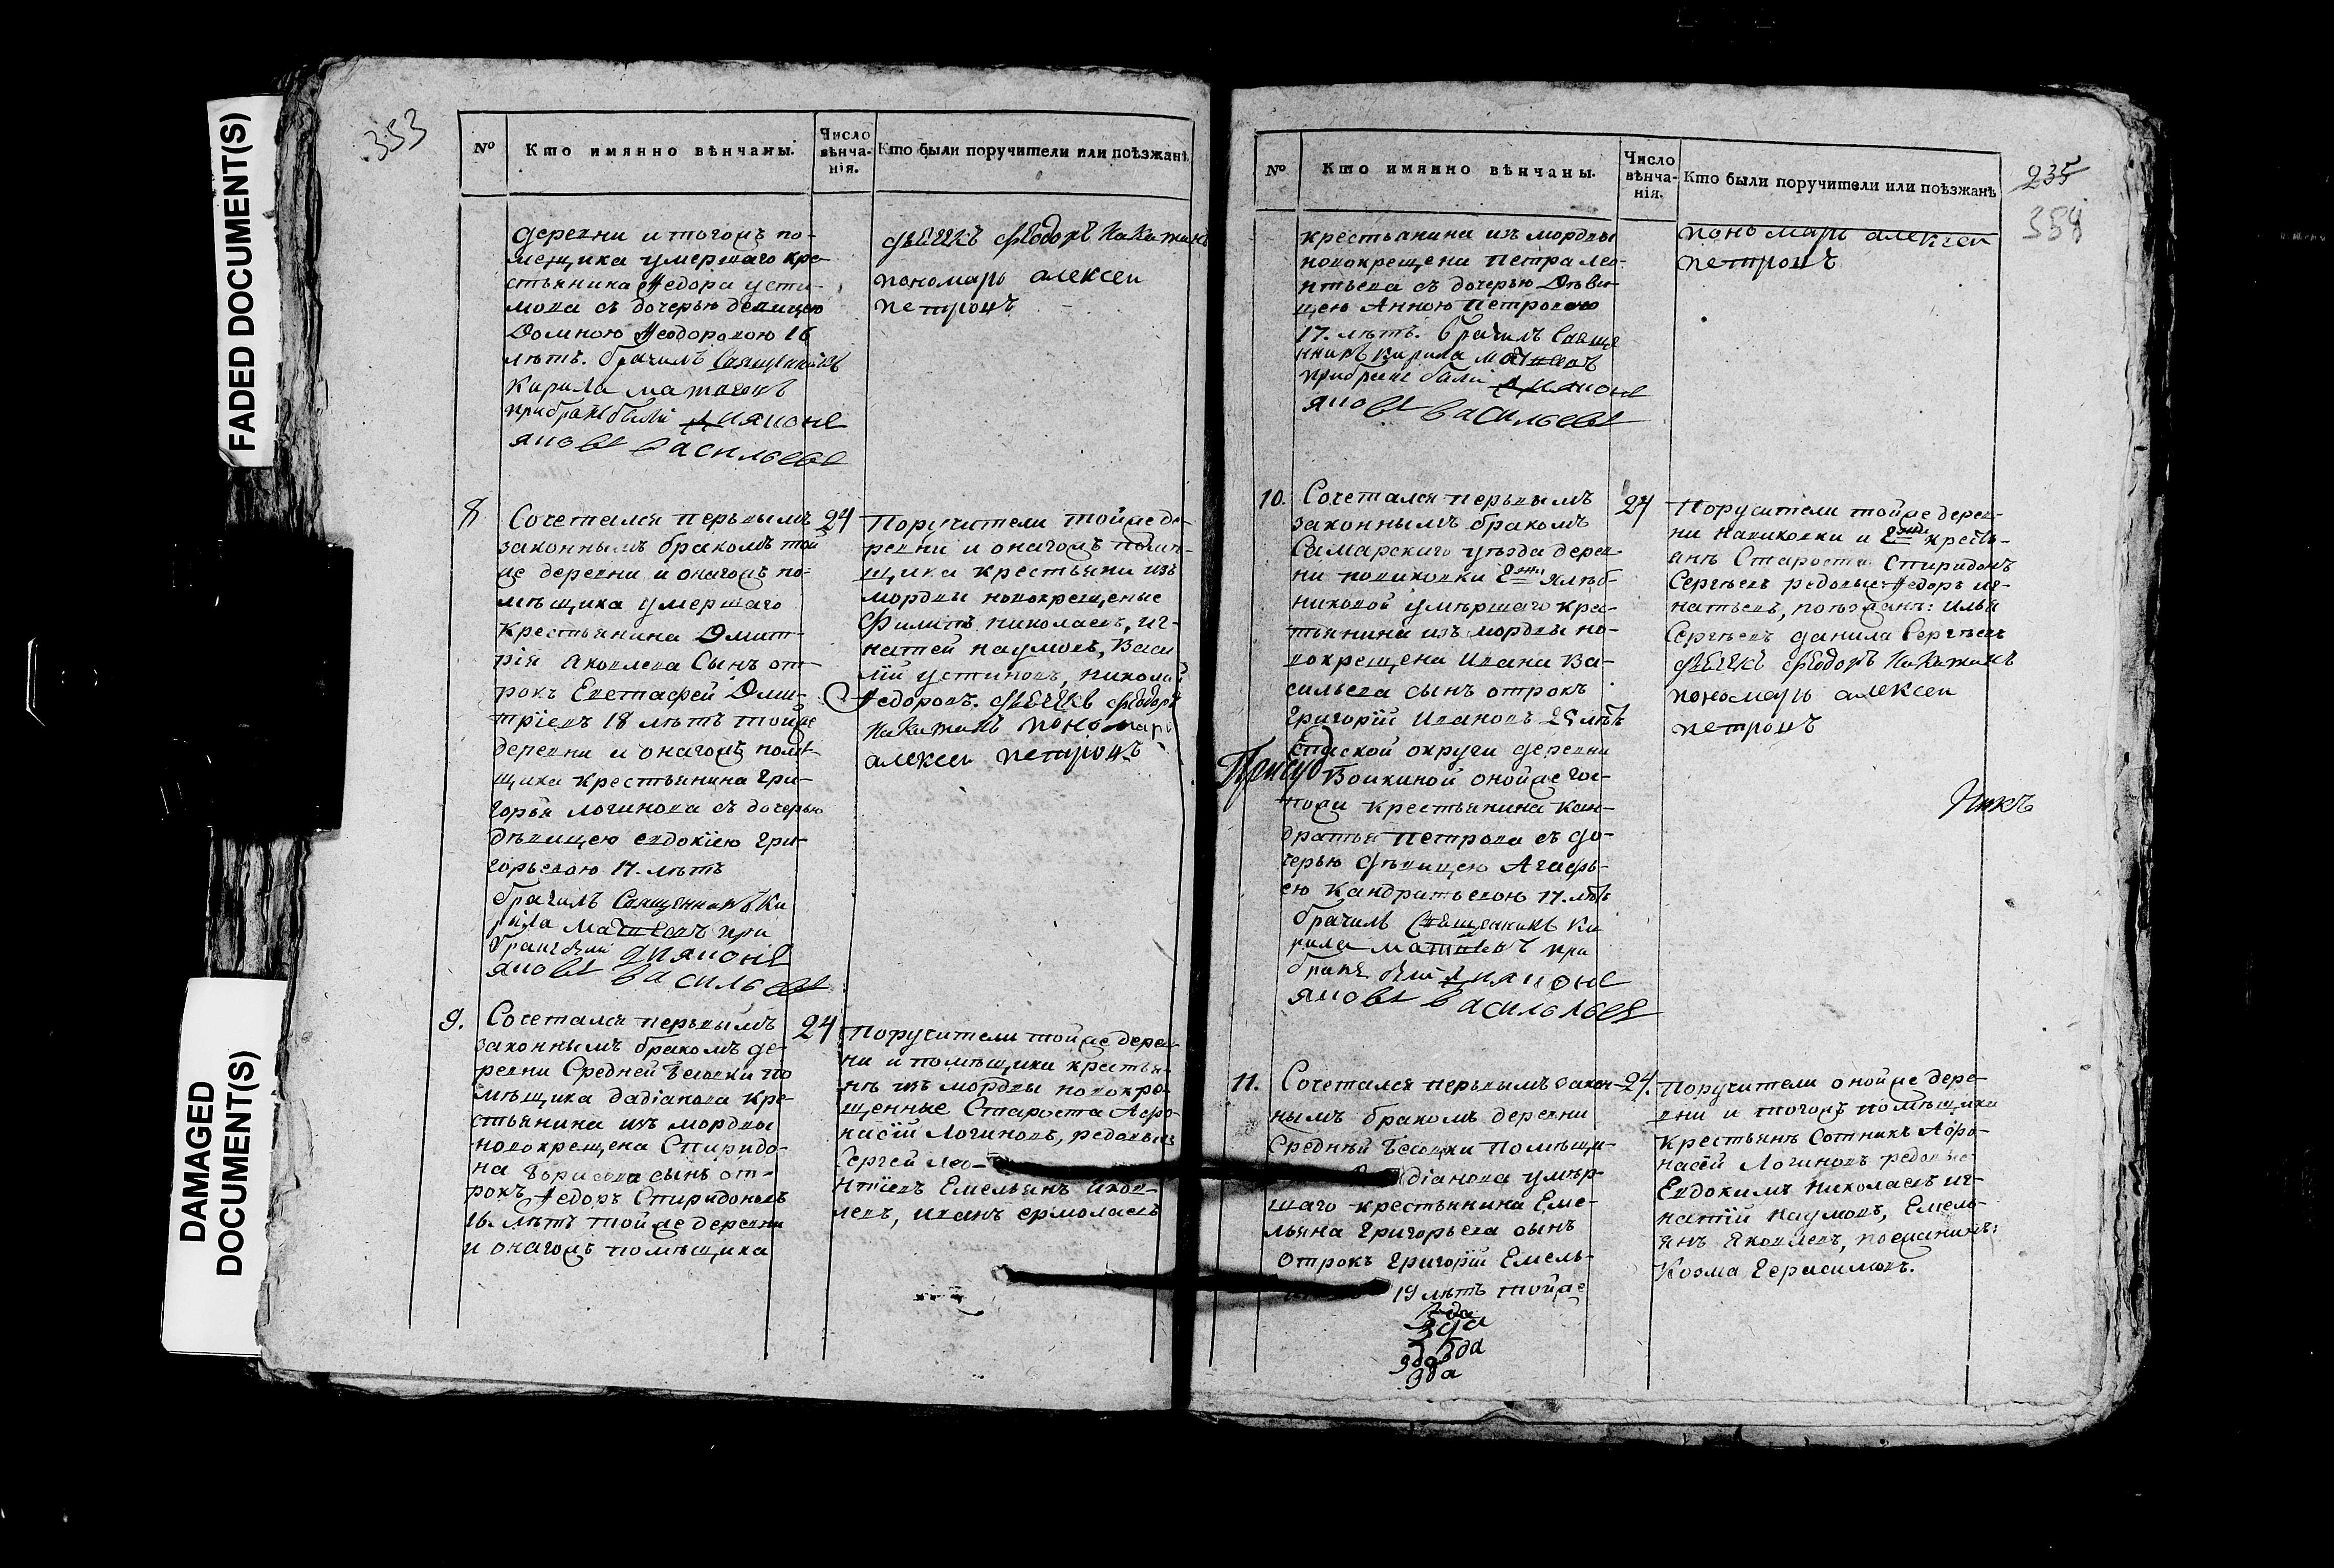 FADED DOCUMENT(S)
DAMAGED
DOCUMENT(S)
353
№
Кто имянно вѣнчаны.
Число
вѣнча-
нія.
Кто были поручители или поѣзжанѣ
деревни и тогожъ по-
мещика умершаго кре-
стьянина Ѳедора усти-
мова съ дочерью девицею
Домною Ѳеодоровою 16
лѣтъ. брачилъ Священникъ
Кирила
при браке были диаконъ
яковъ васильевъ
Ѳеодоръ
пономарь алексеи
петровъ
8
Сочетался первымъ
законнымъ бракомъ той
же деревни и оногожъ по-
мѣщика умершаго
крестьянина Дмит-
рія Яковлева Сынъ от-
рокъ Евстафей Дми-
тріевъ 18 лѣтъ тойже
деревни и оногожъ помѣ-
щика крестьянина Гри-
горья логинова съ дочерью
дѣвицею евдокіею Гри-
горьевою 17. лѣтъ
брачилъ Священникъ Ки
рила при
браке были диаконъ
яковъ васильевъ
24
Поручители тойже де-
ревни и оногожъ помѣ-
щика крестьяни изъ
мордвы новокрещеные
Филипъ николаевъ, иг-
натей наумовъ, Васи
лій устиновъ, николай
Ѳедоровъ. Ѳеодоръ
пономарь
алексеи петровъ
9.
Сочетался первымъ
законнымъ бракомъ де-
ревни Средней Бесовки по
мѣщика дадіанова кре-
стьянина изъ мордвы
новокрещена Спиридо-
на Борисова сынъ от-
рокъ Ѳедоръ Спиридоновъ
16. лѣтъ тойже деревни
и оногожъ помѣщика
24
Поручители тойже дерев-
ни и помѣщика крестья-
нѣ изъ мордвы новокре-
щенные Староста Афо-
насій Логиновъ, редовые
Сергей Лео-
нтіевъ Емельянъ Яков-
левъ, иванъ ермолаевъ
№
Кто имянно вѣнчаны.
Число
вѣнча-
нія.
Кто были поручители или поѣзжанѣ
235
354
крестьянина изъ мордвы
новокрещена Петра Лео-
нтьева съ дочерью Дѣви-
цею Анною Петровою
17. лѣтъ. брачилъ Свяще
нникъ кирила
при браке были диаконъ
яковъ васильевъ
пономарь алексеи
петровъ
10.
Сочетался первымъ
законнымъ бракомъ
Самарскаго уѣзда дерев-
ни новиковки
умѣршаго кре-
тьянина изъ мордвы но-
вокрещена Ивана Ва-
сильева сынъ отрокъ
Григорій Ивановъ 25 лѣтъ
округи деревни
оной же гос-
пожи крестьянина Кан-
дратья Петрова съ до-
черью дѣвицею Агафь-
ею Кандратьевою 17. лѣтъ
брачилъ Священникъ Ки
рила при
браке были диаконъ
яковъ васильевъ
24
Поручители тойже дерев-
ни новиковки и крестья-
анъ Староста Спиридонъ
Сергѣевъ редовые Ѳедоръ иг-
натьевъ, поѣзжанѣ: илья
Сергѣевъ данила Сергѣевъ
Ѳеодоръ
пономарь алексеи
петровъ
11.
Сочетался первымъ закон-
нымъ бракомъ деревни
Средней Бесовки Помѣщи-
діанова умѣр-
шаго крестьянина Еме-
льяна Григорьева сынъ
Отрокъ Григорій Емель-
19 лѣтъ тойже
24.
Поручители онойже дере-
вни и тогожъ помѣщика
крестьянъ Сотникъ Афо-
насій Логиновъ редовые
Евдокимъ Николаевъ иг-
натій Наумовъ, Емель-
янъ Яковлевъ,
Козма Герасимовъ.